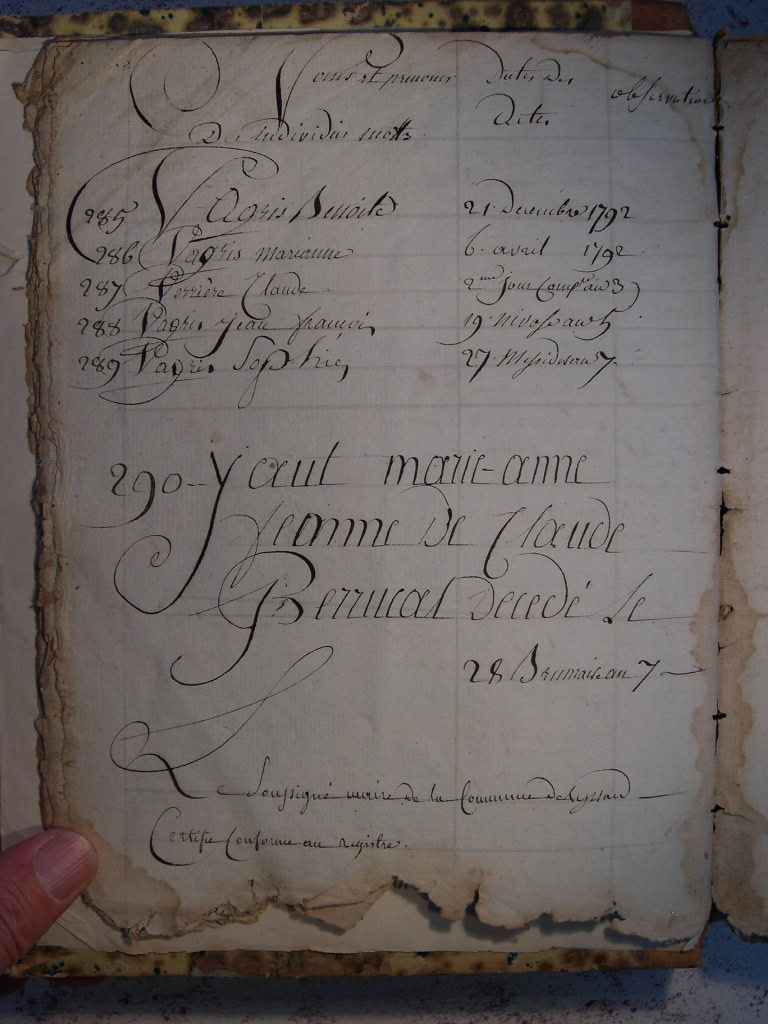 Noms et prenoms Dates des observations
Des individus morts. Actes
285 Vagris Benoite 21. Decembre 1792
286 Vagris marianne 6. avril 1792
287 Verrière Claude 2me jour Compre an 3
288 Vagris jean françois 19. nivose an 5
289 Vagris Sophie 27. Messidor an 7.
290 - yvaut marie-anne
feamme De Claude
Berrucat Decedé le
28 Brumaire an 7
Le Soussigné maire de la Commune de
Certifie Conforme au registre.